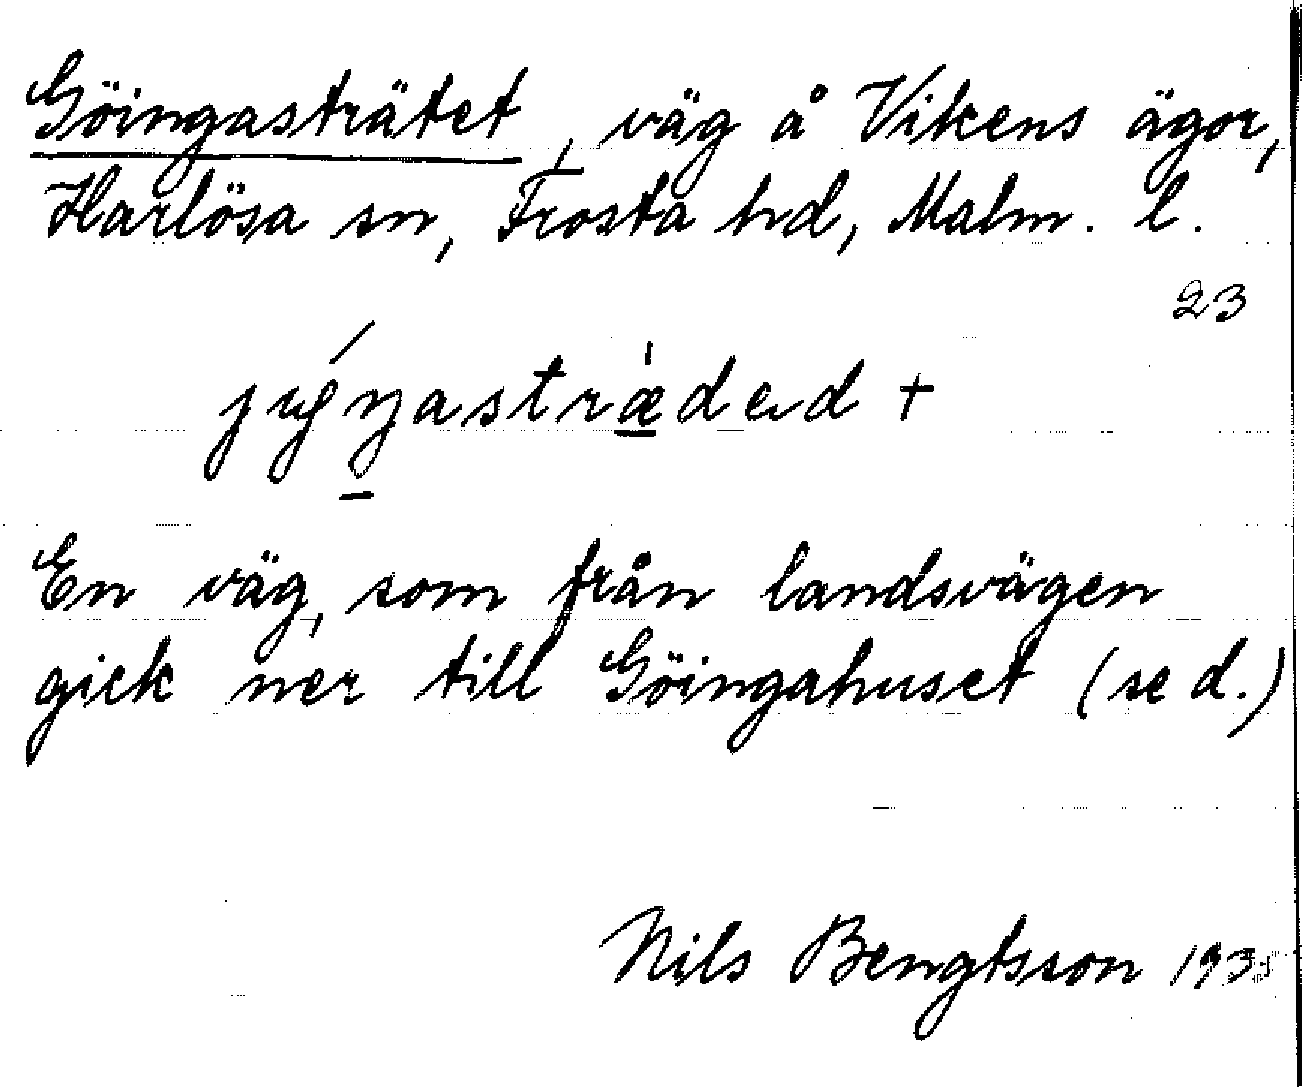 Göingasträtet, väg å Vikens ägor,
Harlösa sn, Frosta hd, Malm. l.
23
En väg, som från landsvägen
gick ner till Göingahuset (se d.)
Nils Bengtsson